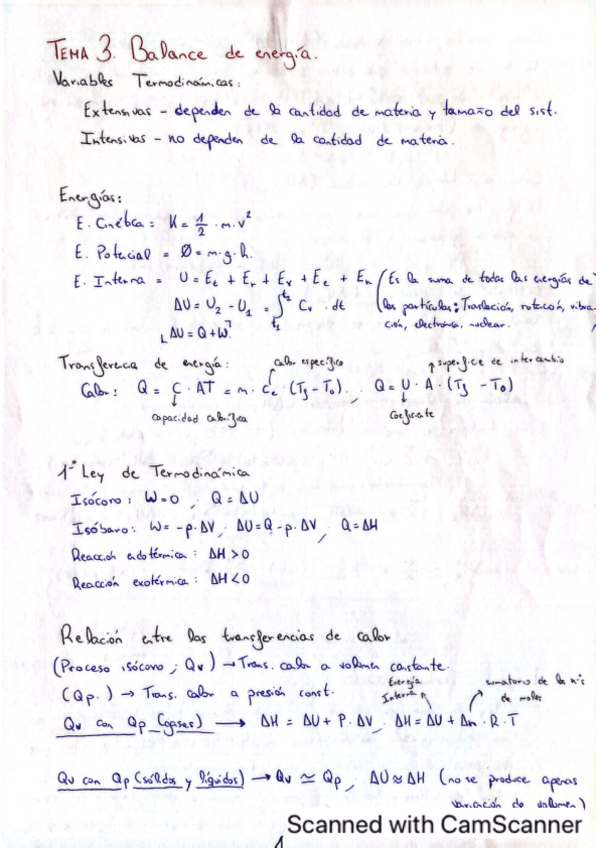 TEMA 3. Balance de energía.
Variables Termodinámicas:
Extensivas - dependen de la cantidad de materia y tamaño del sist.
Intensivas - no dependen de la cantidad de materia.
Energías:
E. Cinética = K = 1/2 · m · v²
E. Potencial = Ø = m·g·h.
E. Interna = U = Et + Er + Ev + Ee + En (Es la suma de todas las energías de
ΔU = U2 - U1 = ∫t1t2 Cv · dt las partículas: Traslación, rotación, vibra
ΔU = Q + W ción, electrónica, nuclear.
Transferencia de energía: calor específico superficie de intercambio
Calor: Q = C · ΔT = m · ce · (Tf - To) . Q = U · A · (Tf - To)
capacidad calorífica Coeficiente
1ª Ley de Termodinámica
Isócoro: W=0 , Q = ΔU
Isóbaro: W = -p·ΔV , ΔU = Q - p·ΔV , Q = ΔH
Reacción endotérmica : ΔH > 0
Reacción exotérmica : ΔH < 0
Relación entre las transferencias de calor
(Proceso isócoro ; Qv) → Trans. calor a volumen constante.
(Qp.) → Trans. calor a presión const. Energía Interna sumatorio de los nºs de moles
Qv con Qp (gases) → ΔH = ΔU + P·ΔV , ΔH = ΔU + Δn · R · T
Qv con Qp (sólidos y líquidos) → Qv ≃ Qp , ΔU ≈ ΔH (no se produce apenas
variación de volumen)
Scanned with CamScanner
1